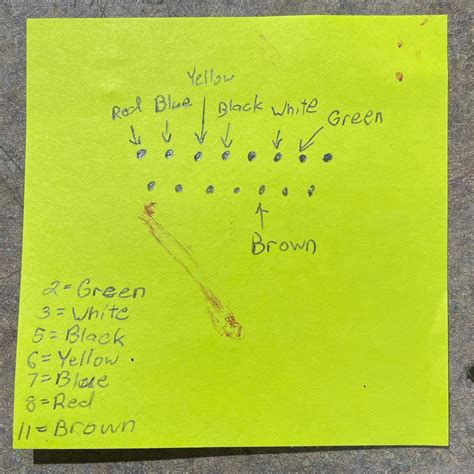 Yellow
Red Blue Black White Green
Brown
2=Green
3=White
5=Black
6=Yellow
7=Blue
8=Red
11=Brown